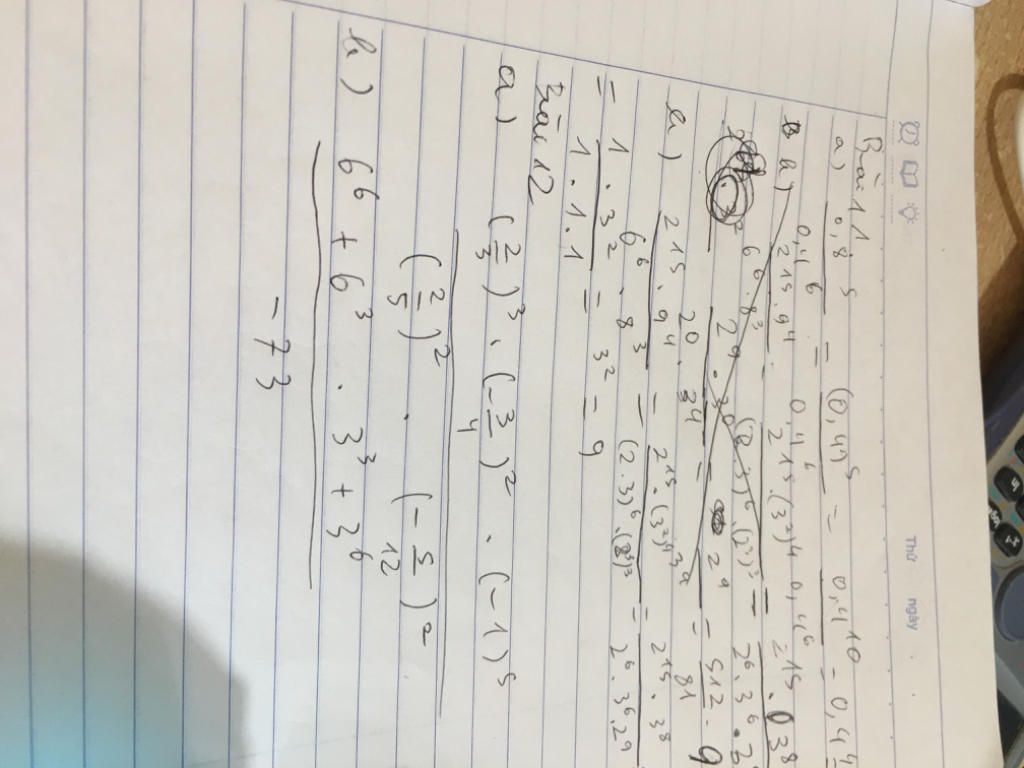 Thứ ngày
Bài 11.
a) 0,8^5 / 0,4^6 = (0,4^2)^5 / 0,4^6 = 0,4^10 / 0,4^6 = 0,4^4
b) 2^15.9^4 / 6^6.8^3 = 2^15.(3^2)^4 / (2.3)^6.(2^3)^3 = 2^15.3^8 / 2^6.3^6.2
a) 2^15.9^4 / 6^6.8^3 = 2^15.(3^2)^4 / (2.3)^6.(2^3)^3 = 2^15.3^8 / 2^6.3^6.2^9
= 1.3^2 / 1.1.1 = 3^2 = 9
Bài 12
a) (2/3)^3 . (-3/4)^2 . (-1)^5
(2/5)^2 . (-5/12)^2
b) 6^6 + 6^3 . 3^3 + 3^6
-73